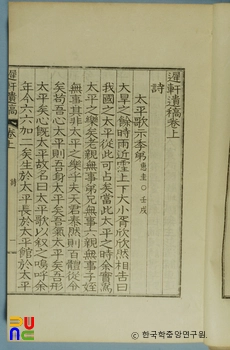 遲軒遺稿卷上
詩
太平歌示季弟 惠圭 ○ 壬戌
大旱之餘時雨近霪上下大小胥欣欣然相告曰
我國之太平從此可占矣當此太平之時余實爲
太平之樂矣老親無事弟兄無事六親無事子姪
無事其非太平之樂乎夫天君泰然則百體從令
矣苟吾心太平則吾身太平矣吾氣太平矣吾形
太平矣心旣太平故名曰太平歌以叙之嗚呼余
年今六六加二矣生於太平長於太平館於太平
遲軒遺稿 卷上 詩 一
ⓒ 한국학중앙연구원